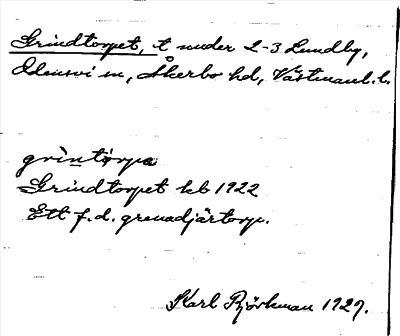 Grindtorpet, t under 2-3 Lundby,
Odensvi sn, Åkerbo hd, Västmanl. l.
grìntòrpə
Grindtorpet kb 1922
Ett f. d. grenadjärtorp.
Karl Björkman 1927.